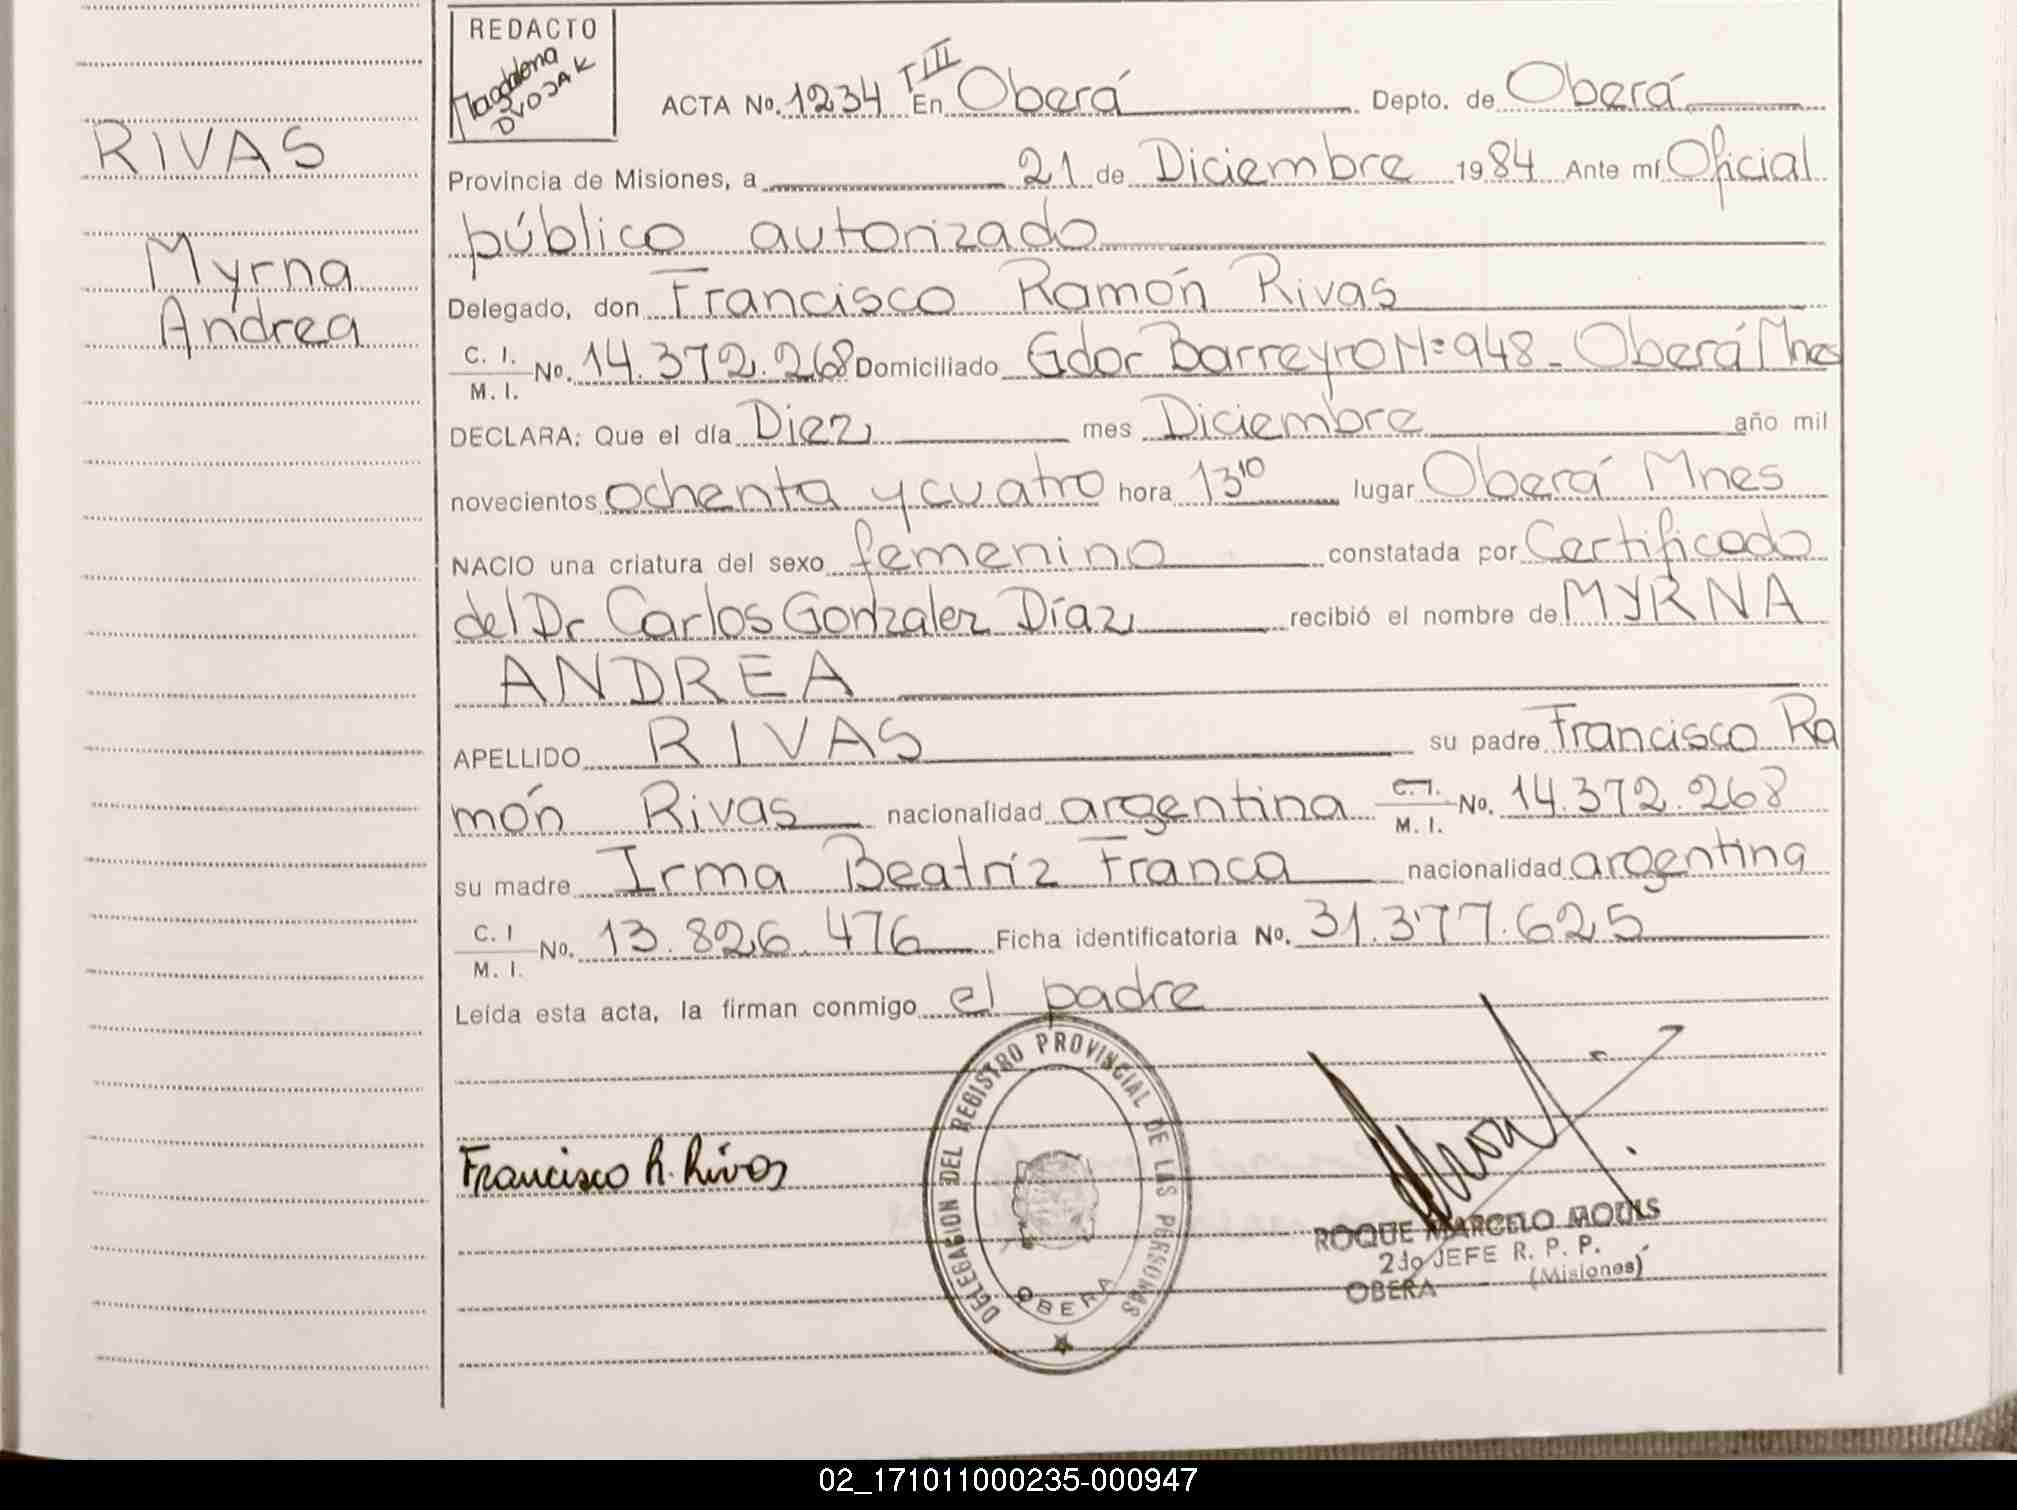 REDACTO
Magdalena
DVOJAK
RIVAS
Myrna
Andrea
ACTA No. 1234 T III En Oberá Depto. de Oberá
Provincia de Misiones, a 21 de Diciembre 1984 Ante mí Oficial
público autorizado
Delegado, don Francisco Ramón Rivas
C. I. M. I. No. 14.372.268 Domiciliado Gdor Barreyro Nº 948 - Oberá Mnes
DECLARA: Que el día Diez mes Diciembre año mil
novecientos ochenta y cuatro hora 13 10 lugar Oberá Mnes
NACIO una criatura del sexo femenino constatada por Certificado
del Dr Carlos Gonzalez Díaz recibió el nombre de MYRNA
ANDREA
APELLIDO RIVAS su padre Francisco Ra
món Rivas nacionalidad argentina C. I. M. I. No. 14.372.268
su madre Irma Beatríz Franca nacionalidad argentina
C. I M. I. No. 13.826.476 Ficha identificatoria No. 31.377.625
Leída esta acta, la firman conmigo el padre
DELEGACION DEL REGISTRO PROVINCIAL DE LAS PERSONAS
OBERA
Francisco R. Rivas
ROQUE MARCELO
2do JEFE R. P. P.
OBERA (Misiones)
02_171011000235-000947